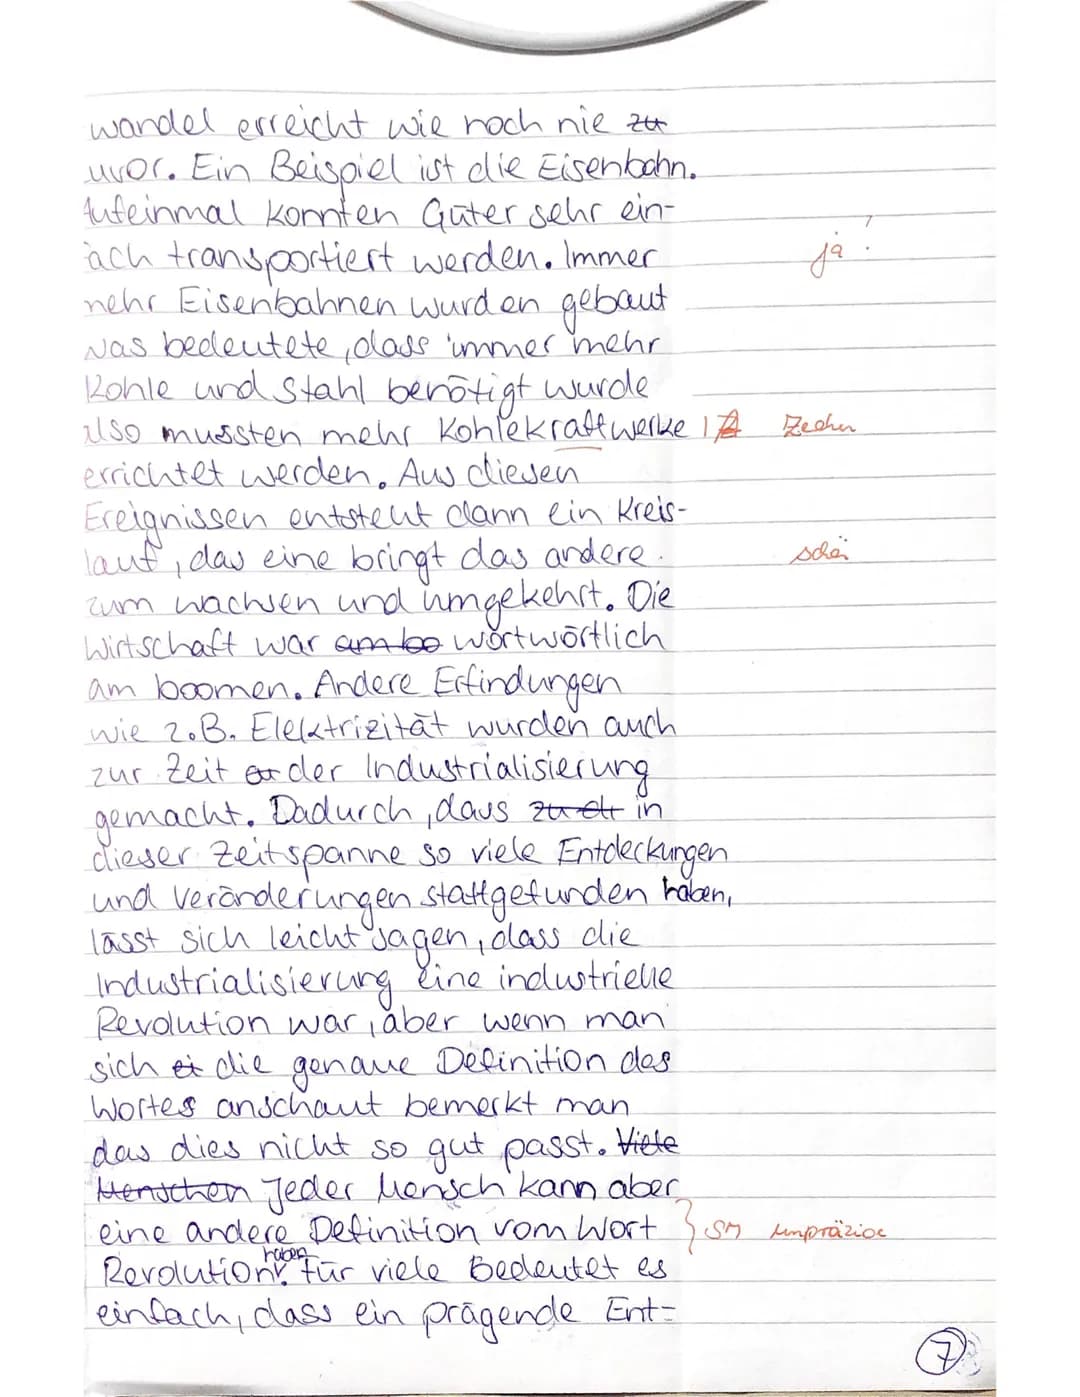 wandel erreicht wie noch nie zu
uvor. Ein Beispiel ist die Eisenbahn.
Aufeinmal konnten Güter sehr ein-
ach transportiert werden. Immer ja!
mehr Eisenbahnen wurden gebaut
was bedeutete, dass immer mehr
Kohle und Stahl benötigt wurde
also mussten mehr Kohlekraftwerke | A Zechen
errichtet werden. Aus diesen
Ereignissen entsteht dann ein Kreis-
lauf, das eine bringt das andere schön
zum wachsen und umgekehrt. Die
Wirtschaft war am bo wortwörtlich
am boomen. Andere Erfindungen
wie z.B. Elektrizität wurden auch
zur Zeit der Industrialisierung
gemacht. Dadurch, dass zu in
dieser Zeitspanne so viele Entdeckungen
und Veränderungen stattgefunden haben,
lässt sich leicht sagen, dass die
Industrialisierung eine industrielle
Revolution war, aber wenn man
sich ei die genaue Definition des
Wortes anschaut bemerkt man
das dies nicht so gut passt. Viele
Menschen Jeder Mensch kann aber
eine andere Definition vom Wort } SM unpräzise
Revolution haben. Für viele Bedeutet es
einfach, dass ein prägende Ent-
7